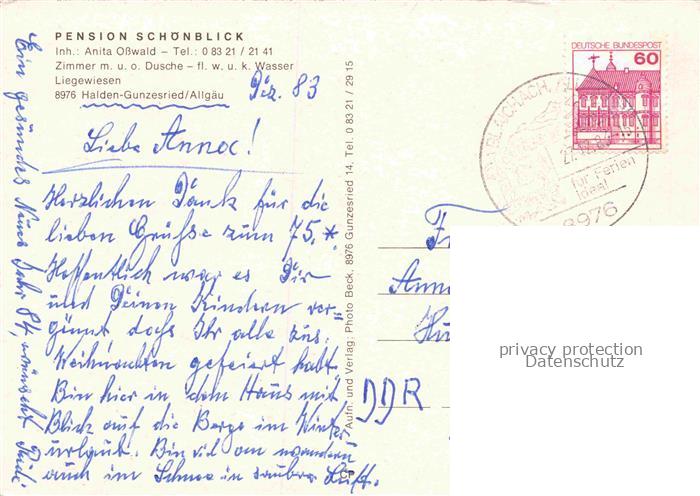 PENSION SCHÖNBLICK
Inh.: Anita Oßwald – Tel.: 0 83 21 / 21 41
Zimmer m. u. o Dusche – fl. w. u. k. Wasser
Liegewiesen
8976 Halden-Gunzesried/Allgäu
Dez. 83
Liebe Anna!
Herzlichen Dank für die
lieben Grüße zum 75. *
Hoffentlich war es Dir
und Deinen Kindern ver-
gönnt dass Ihr alle zus.
Weihnachten gefeiert habt.
Bin hier in dem Haus mit
Blick auf die Berge im Winter-
urlaub. Bin viel am wandern
auch im Schnee in saubre Luft.
Ein gesundes Neues Jahr 84, wünscht
Aufn. und Verlag: Photo Beck, 8976 Gunzesried 14, Tel. 0 83 21 / 29 15
CP
DEUTSCHE BUNDESPOST
60
BLAICHACH
für Ferien
ideal
8976
Anna
DDR
privacy protection
Datenschutz